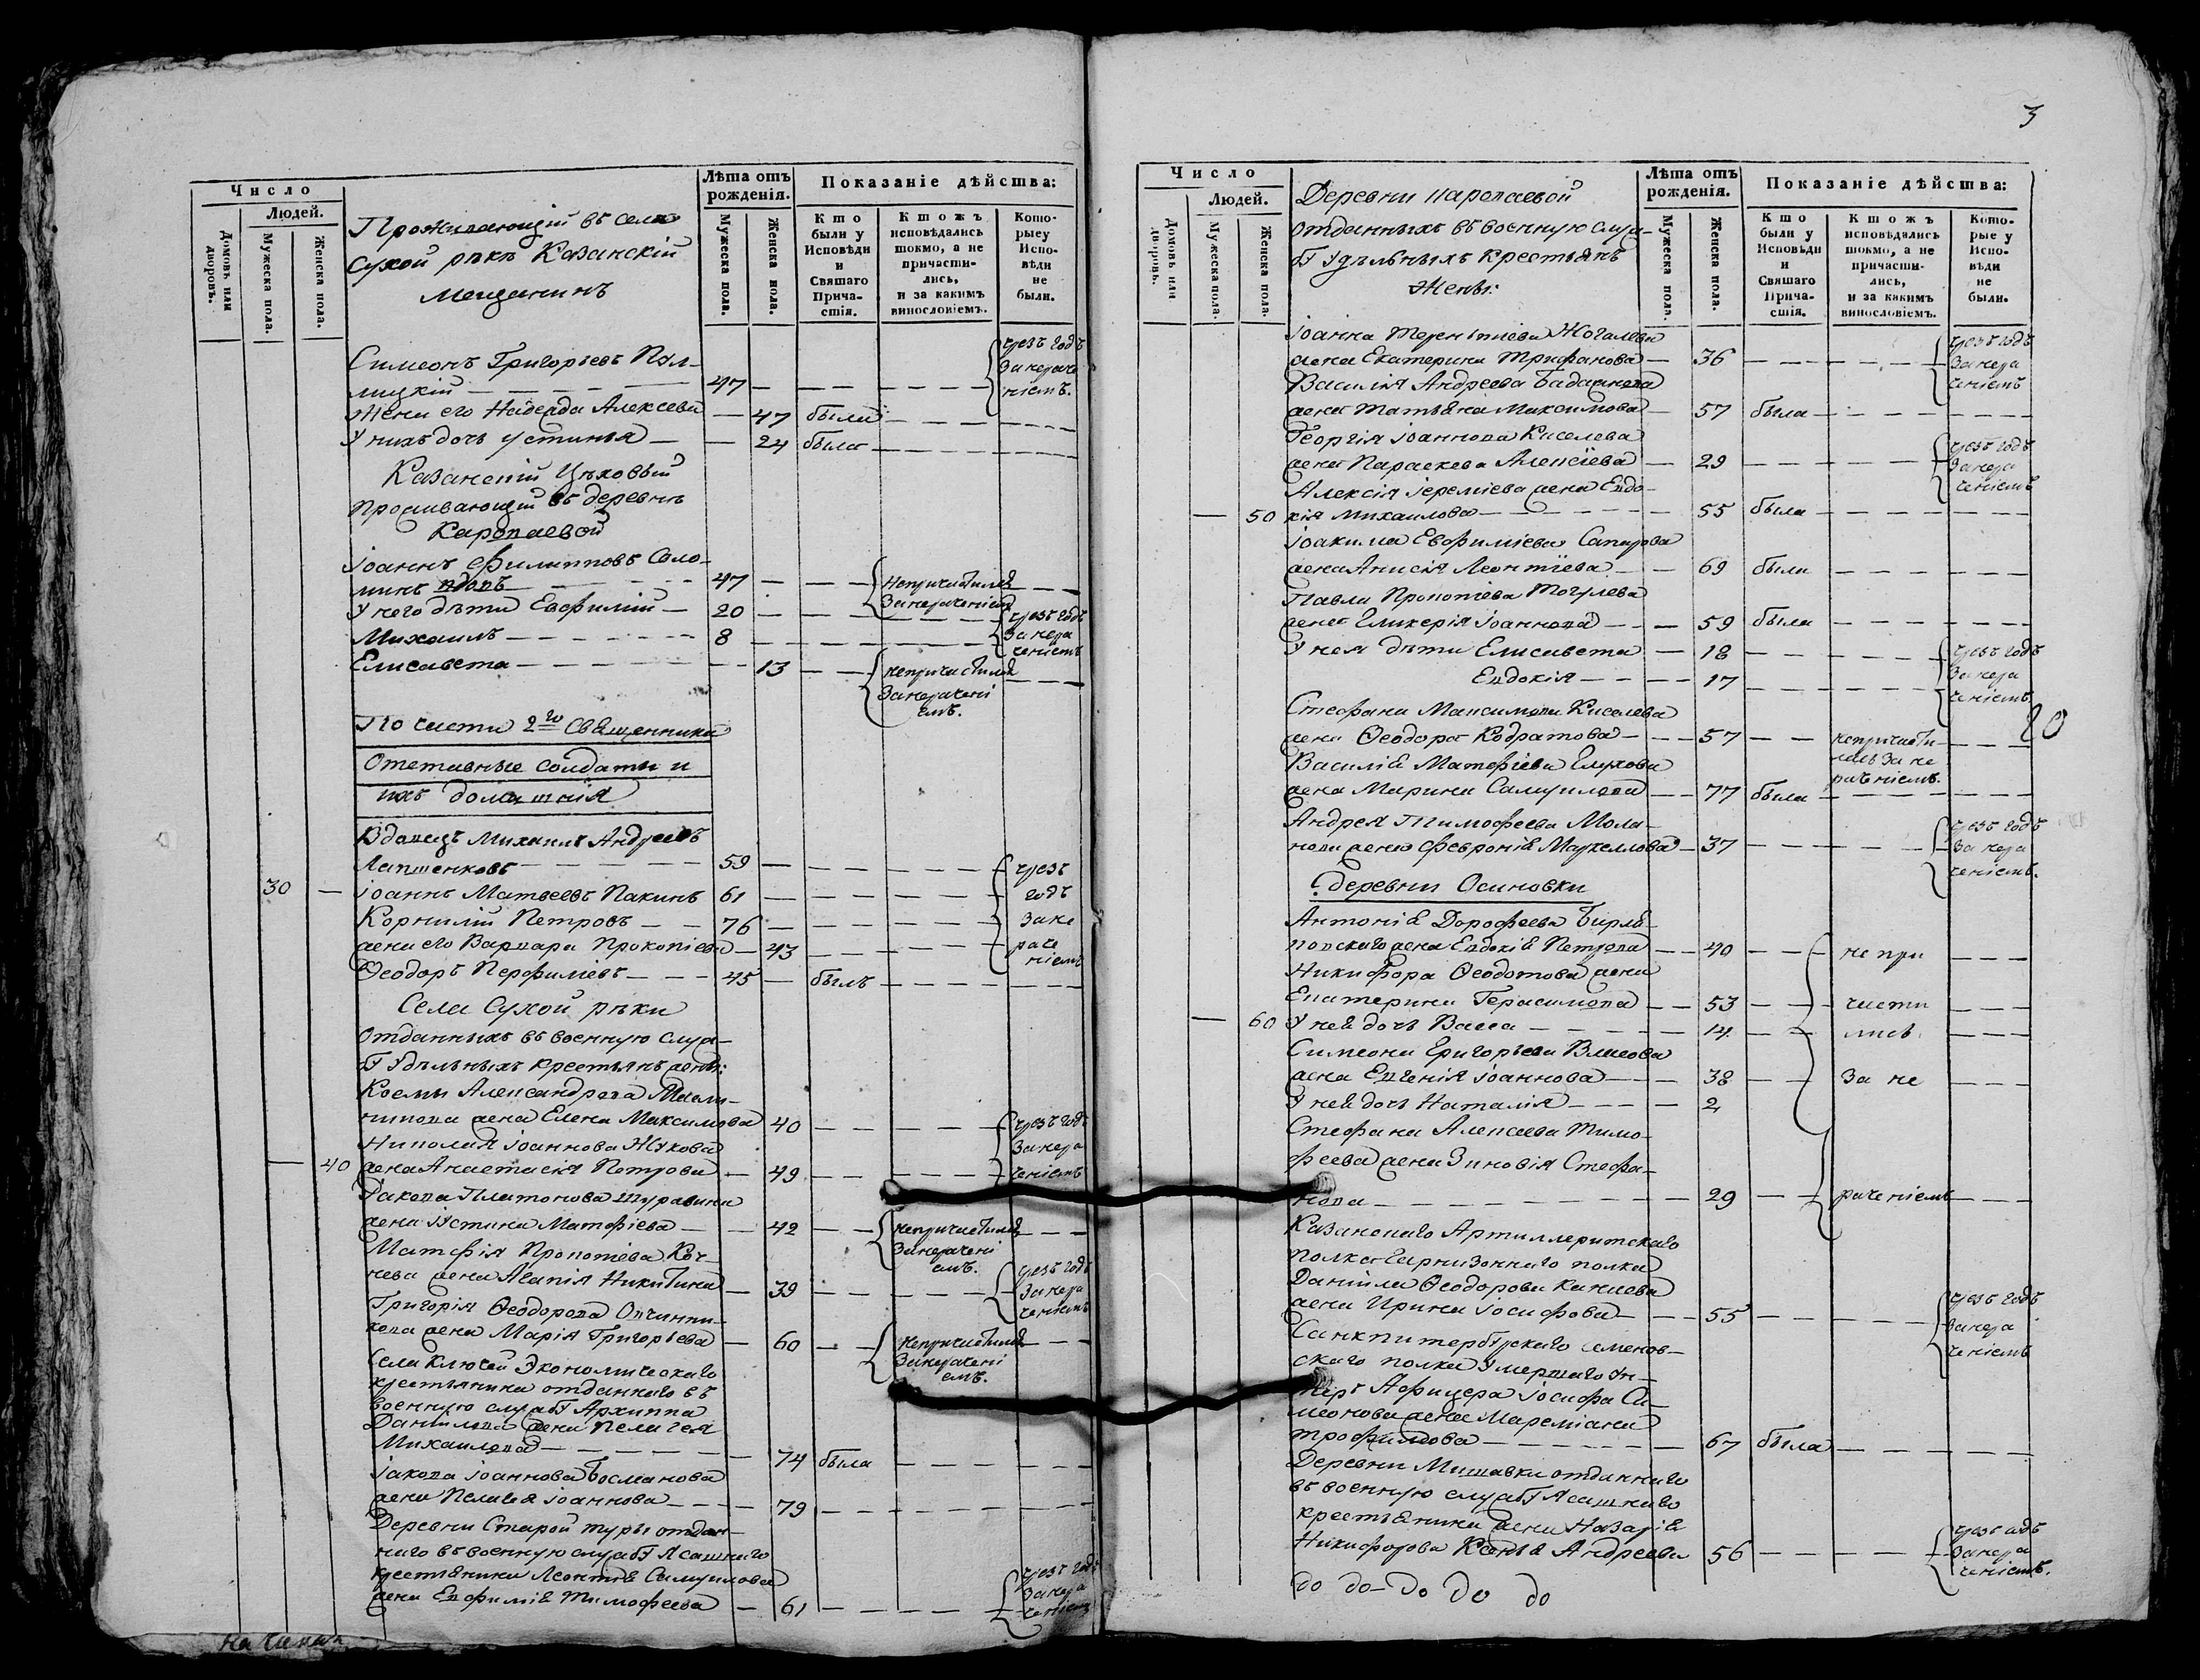 Число
Людей.
Домовъ или дворовъ.
Мужеска пола.
Женска пола.
Проживающій въ селѣ
Сухой рѣкѣ Казанскій
Мещанинъ
Лѣта отъ рожденія.
Мужеска пола.
Женска пола.
Показаніе дѣйства:
Кто были у Исповѣди и Святаго Причастія.
Ктожъ исповѣдались токмо, а не причастились, и за какимъ винословіемъ.
Которыеу Исповѣди не были.
Симеонъ Григорьевъ
47 чрезъ годъ
За нераче
ніемъ.
Жена его Надежда Алексева — 47 была
У нихъ дочь Устинья — 24 была
Казанскій Цѣховый
Проживающій въ деревнѣ
Каропаевой
Іоаннъ Филипповъ Соло-
минъ вдовъ 47 Непричастился
За нераченіемъ
У него дѣти Евфимій — 20
Михаилъ — 8 чрезъ годъ
За нера
ченіемъ
Елисавета — 13 непричастилась
За нерачені
емъ.
По части 2го Священника
Отставные Солдаты и
ихъ домашнія
Вдовецъ Михаилъ Андреевъ
Лапшенковъ — 59 чрезъ
30 — Іоаннъ Матвеевъ Пакинъ 61 годъ
Корнилій Петровъ — 76 за не
жена его Варвара Прокопіева — 43 раче
ніемъ
Ѳеодоръ Перфиліевъ — 45 — былъ
Села Сухой рѣки
отданныхъ въ военную служ-
бу Удѣльныхъ крестьянъ жены:
Космы Александрова
жена Елена Максимова 40 чрезъ годъ
Николая Іоаннова Жукова За нера
— 40 жена Анастасія Петрова — 49 ченіемъ
Іакова Платонова Журавина
жена Іустина Матфіева — 42 непричастилась
За нерачені
емъ.
Матфія Прокопіева Коч-
нева жена Агапія Никитина — 39 чрезъ годъ
За нера
ченіемъ
Григорія Ѳеодорова Овчинни-
кова жена Марія Григорьева — 60 Непричастилась
За нерачені
емъ.
Села Ключей Экономическаго
крестьянина отданнаго въ
военную службу Архиппа
Данилова жена Пелагея
Михаилова — 74 была
Іакова Іоаннова Босманова
жена Пелагея Іоаннова — 79
Деревни Старой туры отдан-
наго въ военную службу Ясашнаго
крестьянина Леонтія Самуилова
жена Евфимія Тимофеева — 61 чрезъ годъ
За нера
ченіемъ
3
Число
Людей.
Домовъ или дворовъ.
Мужеска пола.
Женска пола.
Деревни Каропаевой
отданныхъ въ военную служ-
бу Удѣльныхъ крестьянъ
жены:
Лѣта отъ рожденія.
Мужеска пола.
Женска пола.
Показаніе дѣйства:
Кто были у Исповѣди и Святаго Причастія.
Ктожъ исповѣдались токмо, а не причастились, и за какимъ винословіемъ.
Которые у Исповѣди не были.
Іоанна Терентіева Жогалева
жена Екатерина Трифанова — 36 чрезъ годъ
За нера
ченіемъ
Василія Андреева Бадашкова
жена Татьяна Максимова — 57 была
Георгія Іоаннова Киселева
жена Параскева Алексіева — 29 чрезъ годъ
За нера
ченіемъ
Алексія Іереміева жена Евдо-
— 50 кія Михаилова — 55 была
Іоакима Евфиміева Сапарова
жена Анисія Леонтіева — 69 была
Павла Прокопіева Тогулева
жена Гликерія Іоаннова — 59 была
У нея дѣти Елисавета — 18 чрезъ годъ
Евдокія — 17 За нера
ченіемъ
20
Стефана Максимова Киселева
жена Ѳеодора Кодратова — 57 непричасти-
лась за не
раченіемъ.
Василія Матфіева Глухова
жена Марина Самуилова — 77 была
Андрея Тимофеева Мола-
нова жена Февронія Маркеллова — 37 чрезъ годъ
За нера
ченіемъ.
Деревни Осиновки
Антонія Дорофеева
жена Евдокія Петрова — 40 не при
Никифора Ѳеодотова жена
Екатерина Герасимова — 53 части
— 60 У ней дочь Васса — 14 лись
Симеона Григорьева Власова
жена Евгенія Іоаннова — 38 За не
У ней дочь Наталія — 2
Стефана Алексеева Тимо-
феева жена Зиновія Стефа-
нова — 29 раченіемъ
Казанскаго Артиллеритскаго
полка Гарнизоннаго полка
Даніила Ѳеодорова Канаева
жена Ирина Іосифова — 55 чрезъ годъ
За нера
ченіемъ
Санкпитербургскаго семенов-
скаго полка Умершаго Ун-
теръ Афицера Іосифа Си-
меонова жена Мареміана
Трофимова — 67 была
Деревни Мишавки отданнаго
въ военную службу Ясашнаго
крестьянина жена Назарія
Никифорова Ксенія Андреева 56 чрезъ годъ
За нера
ченіемъ.
до до до до до